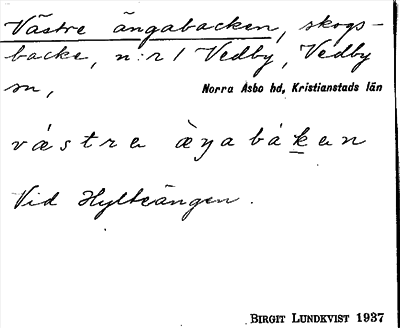 Västre ängabacken, skogs-
backe, n:r 1 Vedby, Vedby
sn, Norra Åsbo hd, Kristianstads län
vástra àŋabákan
Vid Hylteängen.
BIRGIT LUNDKVIST 1937